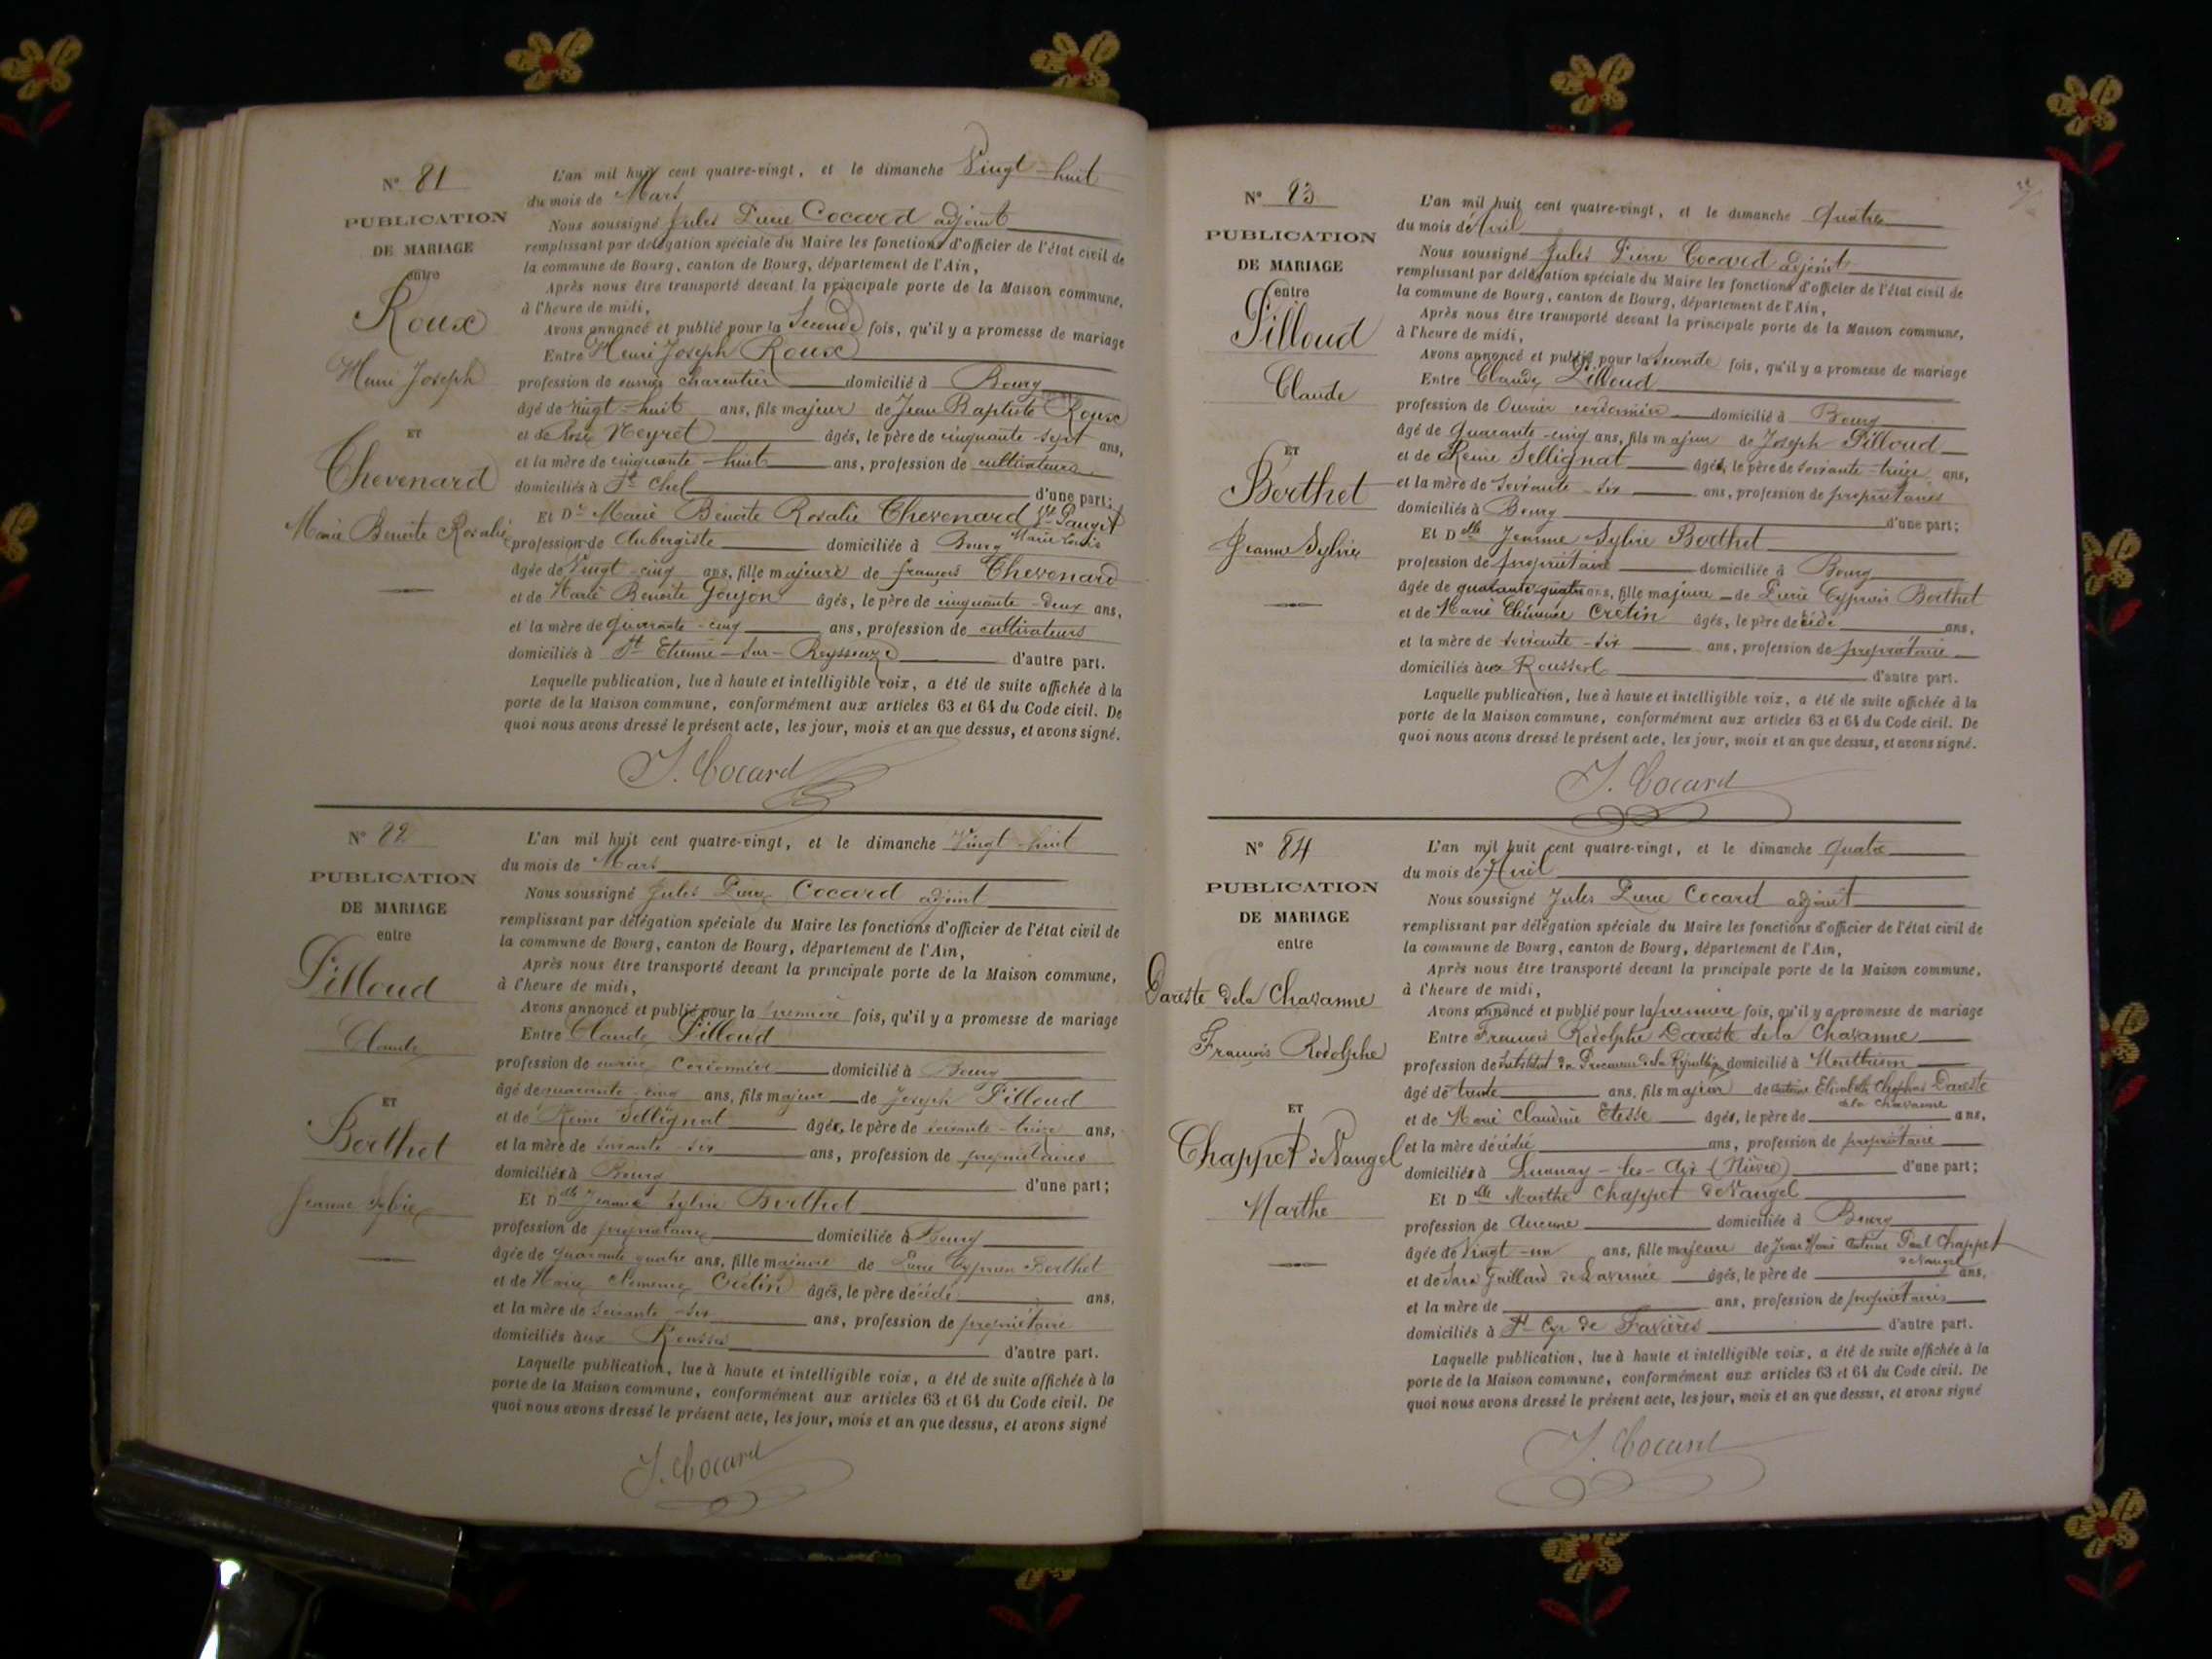 N° 81
PUBLICATION
DE MARIAGE
entre
Roux
Henri Joseph
ET
Chevenard
Marie Benoite Rosalie
L'an mil huit cent quatre-vingt, et le dimanche Vingt-huit
du mois de Mars
Nous soussigné Jules Pierre Cocard adjoint
remplissant par délégation spéciale du Maire les fonctions d'officier de l'état civil de
la commune de Bourg, canton de Bourg, département de l'Ain,
Après nous être transporté devant la principale porte de la Maison commune,
à l'heure de midi,
Avons annoncé et publié pour la Seconde fois, qu'il y a promesse de mariage
Entre Henri Joseph Roux
profession de ouvrier charpentier domicilié à Bourg
âgé de vingt-huit ans, fils majeur de Jean Baptiste Roux
et de Rose Neyret âgés, le père de cinquante-sept ans,
et la mère de cinquante-huit ans, profession de cultivateurs
domiciliés à St Chef d'une part;
Et De Marie Benoite Rosalie Chevenard Vve Pauget
Marie Louis
profession de Aubergiste domiciliée à Bourg
âgée de Vingt-cinq ans, fille majeure de françois Chevenard
et de Marie Benoite Goujon âgés, le père de cinquante-deux ans,
et la mère de quarante-cinq ans, profession de cultivateurs
domiciliés à St Etienne-sur-Reyssouze d'autre part.
Laquelle publication, lue à haute et intelligible voix, a été de suite affichée à la
porte de la Maison commune, conformément aux articles 63 et 64 du Code civil. De
quoi nous avons dressé le présent acte, les jour, mois et an que dessus, et avons signé.
J. Cocard
N° 82
PUBLICATION
DE MARIAGE
entre
Pilloud
Claude
ET
Berthet
Jeanne Sylvie
L'an mil huit cent quatre-vingt, et le dimanche Vingt-huit
du mois de Mars
Nous soussigné Jules Pierre Cocard adjoint
remplissant par délégation spéciale du Maire les fonctions d'officier de l'état civil de
la commune de Bourg, canton de Bourg, département de l'Ain,
Après nous être transporté devant la principale porte de la Maison commune,
à l'heure de midi,
Avons annoncé et publié pour la première fois, qu'il y a promesse de mariage
Entre Claude Pilloud
profession de ouvrier cordonnier domicilié à Bourg
âgé de quarante-cinq ans, fils majeur de Joseph Pilloud
et de Reine Sellignat âgés, le père de soixante-treize ans,
et la mère de soixante-six ans, profession de propriétaires
domiciliés à Bourg d'une part;
Et Dlle Jeanne Sylvie Berthet
profession de propriétaire domiciliée à Bourg
âgée de quarante quatre ans, fille majeure de Pierre Cyprien Berthet
et de Marie Clémence Cretin âgés, le père décédé ans,
et la mère de soixante-six ans, profession de propriétaire
domiciliés aux Rousses d'autre part.
Laquelle publication, lue à haute et intelligible voix, a été de suite affichée à la
porte de la Maison commune, conformément aux articles 63 et 64 du Code civil. De
quoi nous avons dressé le présent acte, les jour, mois et an que dessus, et avons signé
J. Cocard
N° 83
PUBLICATION
DE MARIAGE
entre
Pilloud
Claude
ET
Berthet
Jeanne Sylvie
L'an mil huit cent quatre-vingt, et le dimanche Quatre
du mois de Avril
Nous soussigné Jules Pierre Cocard adjoint
remplissant par délégation spéciale du Maire les fonctions d'officier de l'état civil de
la commune de Bourg, canton de Bourg, département de l'Ain,
Après nous être transporté devant la principale porte de la Maison commune,
à l'heure de midi,
Avons annoncé et publié pour la Seconde fois, qu'il y a promesse de mariage
Entre Claude Pilloud
profession de Ouvrier cordonnier domicilié à Bourg
âgé de Quarante-cinq ans, fils majeur de Joseph Pilloud
et de Reine Sellignat âgés, le père de soixante-treize ans,
et la mère de soixante-six ans, profession de propriétaires
domiciliés à Bourg d'une part;
Et Dlle Jeanne Sylvie Berthet
profession de propriétaire domiciliée à Bourg
âgée de quarante-quatre ans, fille majeure de Pierre Cyprien Berthet
et de Marie Clémence Cretin âgés, le père décédé ans,
et la mère de soixante-six ans, profession de propriétaire
domiciliés aux Rousses d'autre part.
Laquelle publication, lue à haute et intelligible voix, a été de suite affichée à la
porte de la Maison commune, conformément aux articles 63 et 64 du Code civil. De
quoi nous avons dressé le présent acte, les jour, mois et an que dessus, et avons signé.
J. Cocard
N° 84
PUBLICATION
DE MARIAGE
entre
Dareste de la Chavanne
François Rodolphe
ET
Chappet de Vangel
Marthe
L'an mil huit cent quatre-vingt, et le dimanche Quatre
du mois de Avril
Nous soussigné Jules Pierre Cocard adjoint
remplissant par délégation spéciale du Maire les fonctions d'officier de l'état civil de
la commune de Bourg, canton de Bourg, département de l'Ain,
Après nous être transporté devant la principale porte de la Maison commune,
à l'heure de midi,
Avons annoncé et publié pour la première fois, qu'il y a promesse de mariage
Entre François Rodolphe Dareste de la Chavanne
profession de Substitut du Procureur de la République domicilié à Montbrison
âgé de trente ans, fils majeur de Antoine Elisabeth Cléophas Dareste
de la Chavanne
et de Marie Claudine Etesse âgés, le père de ans,
et la mère décédée ans, profession de propriétaire
domiciliés à Lucenay-les-Aix (Nièvre) d'une part;
Et Dlle Marthe Chappet de Vangel
profession de Aucune domiciliée à Bourg
âgée de Vingt-un ans, fille majeure de Jean Marie Antoine Paul Chappet
de Vangel
et de Sara Gaillard de Lavernée âgés, le père de ans,
et la mère de ans, profession de propriétaires
domiciliés à St Cyr de Favières d'autre part.
Laquelle publication, lue à haute et intelligible voix, a été de suite affichée à la
porte de la Maison commune, conformément aux articles 63 et 64 du Code civil. De
quoi nous avons dressé le présent acte, les jour, mois et an que dessus, et avons signé
J. Cocard